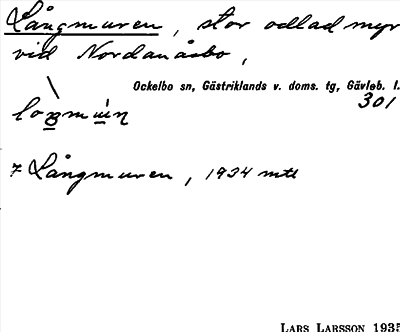 Långmuren, stor odlad myr
vid Nordanåsbo,
Ockelbo sn, Gästriklands v. doms. tg, Gävleb. l.
301
Långmuren, 1934 mtl
LARS LARSSON 1935